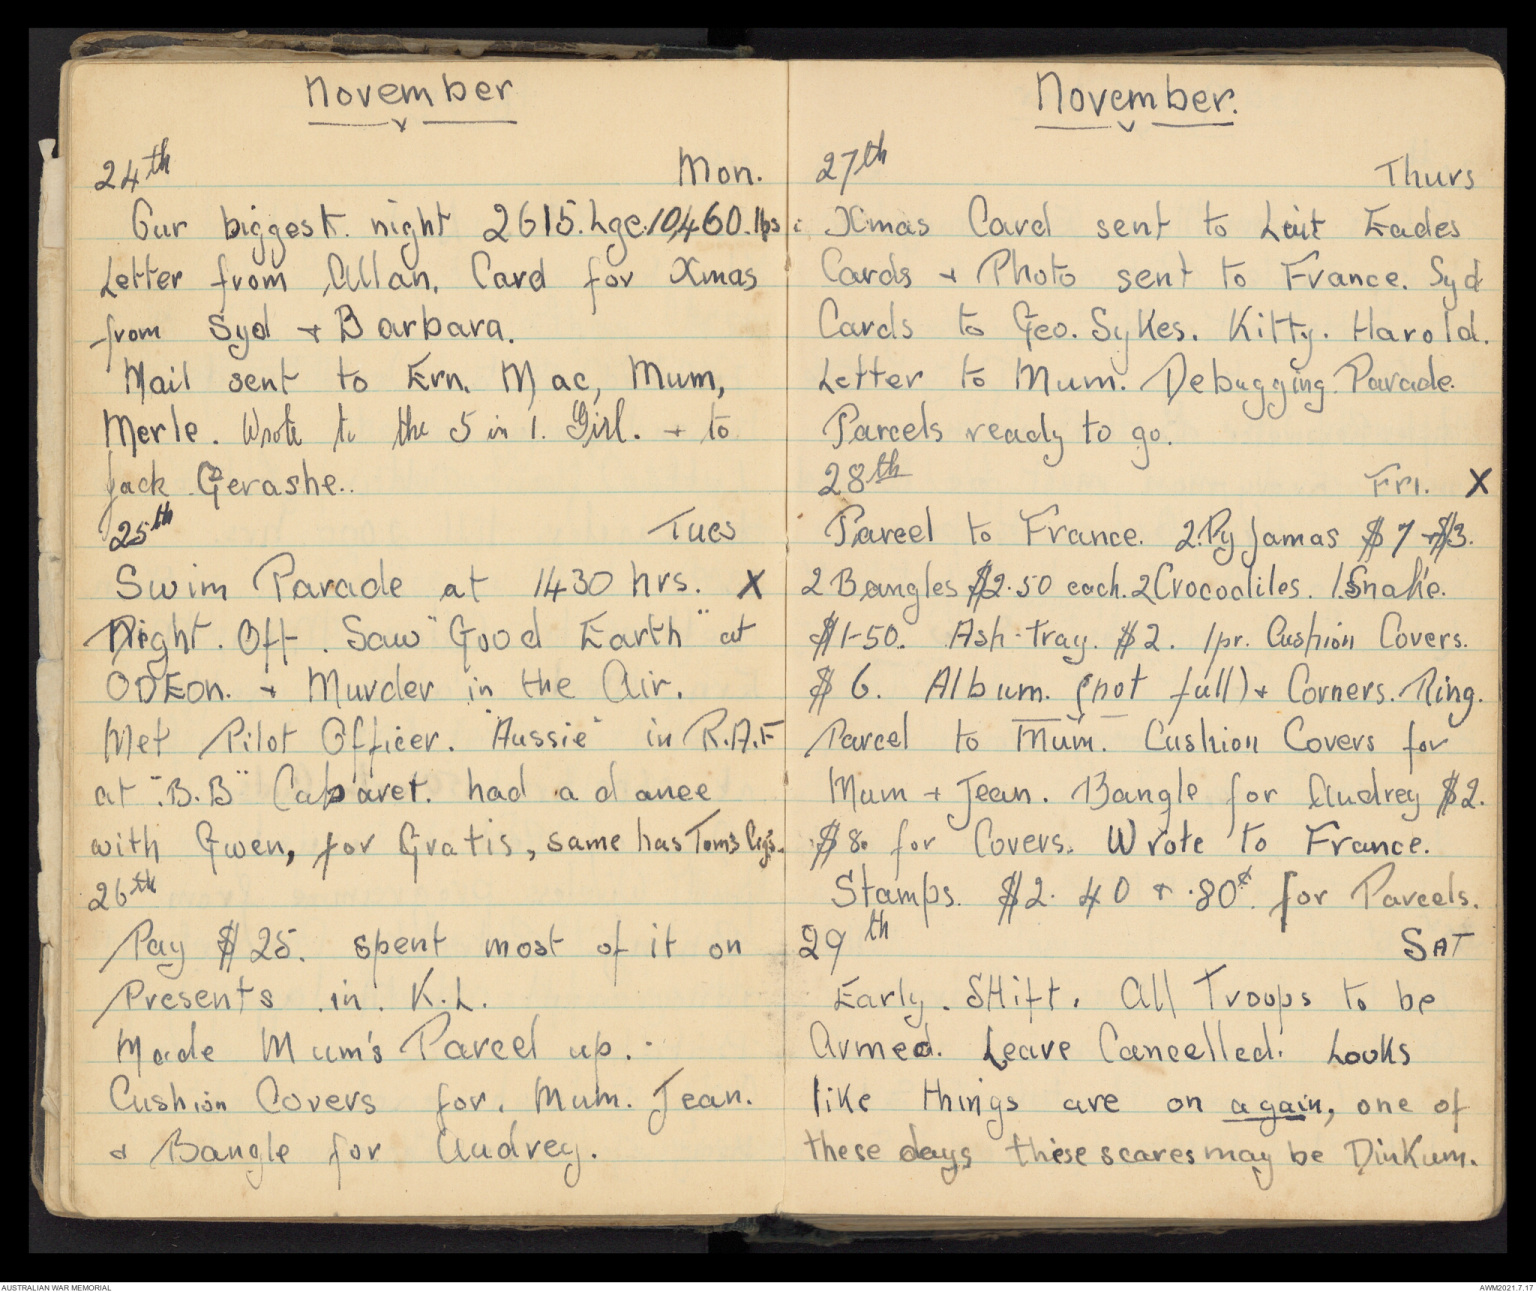 November
24th Mon.
Our biggest night 2615. Lge. 10,460. lbs
Letter from Allan. Card for Xmas
from Syd + Barbara.
Mail sent to Ern. Mac, Mum,
Merle. Wrote to the 5 in 1. Girl. + to
Jack Gerashe..
25th Tues
Swim Parade at 1430 hrs. X
Night. Off. Saw "Good Earth" at
ODEon. + Murder in the Air.
Met Pilot Officer. "Aussie" in R.A.F
at "B.B" Cabaret. had a dance
with Gwen, for Gratis, same has Tom's Cig's.
26th
Pay $25. spent most of it on
Presents in. K.L.
Made Mum's Parcel up.
Cushion Covers for. Mum. Jean.
& Bangle for Audrey.
November.
27th Thurs
Xmas Card sent to Leit Eades
Cards + Photo sent to France. Syd
Cards to Geo. Sykes. Kitty. Harold.
Letter to Mum. Debugging Parade.
Parcels ready to go.
28th Fri. X
Parcel to France. 2. Pyjamas $7 + $3.
2 Bangles $2.50 each. 2 Crocodiles. 1 Snake.
$1-50. Ash-Tray. $2. 1pr. Cushion Covers.
$6. Album. (not full) + Corners. Ring.
Parcel to Mum. Cushion Covers for
Mum + Jean. Bangle for Audrey $2.
$8. for Covers. Wrote to France.
Stamps. $2. 40 + .80¢. for Parcels.
29th SAT
Early. SHift. All Troops to be
Armed. Leave Cancelled. Looks
like things are on again, one of
these days these scares may be DinKum.
AUSTRALIAN WAR MEMORIAL
AWM2021.7.17